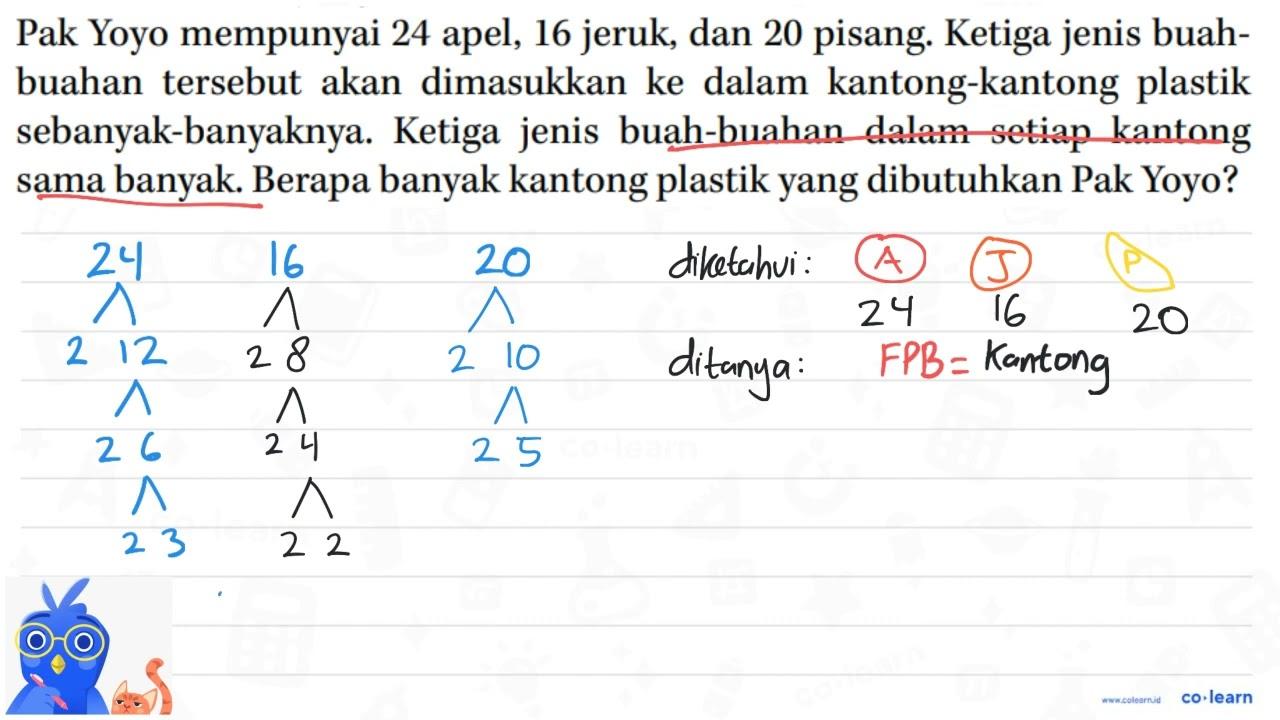 Pak Yoyo mempunyai 24 apel, 16 jeruk, dan 20 pisang. Ketiga jenis buah-
buahan tersebut akan dimasukkan ke dalam kantong-kantong plastik
sebanyak-banyaknya. Ketiga jenis buah-buahan dalam setiap kantong
sama banyak. Berapa banyak kantong plastik yang dibutuhkan Pak Yoyo?
24 16 20 diketahui: A J P
24 16 20
2 12 2 8 2 10 ditanya: FPB = Kantong
2 6 2 4 2 5
2 3 2 2
www.colearn.id co·learn